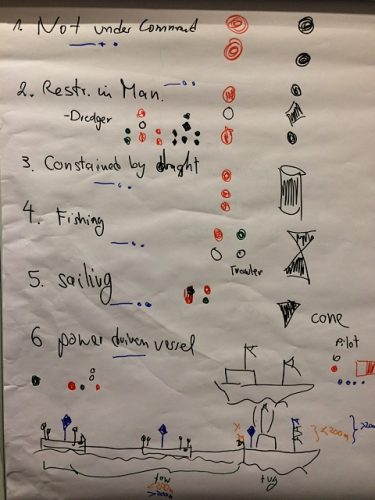 1. Not under Command
2. Restr. in Man.
- Dredger
3. Constained by draght
4. Fishing
Trawler
5. sailing
cone
6 power driven vessel
Pilot
<200m
>200m
tow
>200m
tug